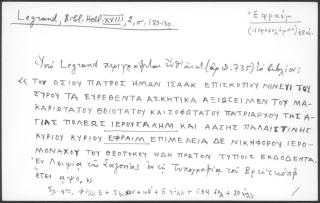 Legrand, Bibl. Hell. XVIII, 2, σ. 129-130.
Ἐφραὶμ
Ὑπὸ Legrand περιγράφεται (ἀρ. 735) τὸ βιβλίον:
« ΤΟΥ ΟΣΙΟΥ ΠΑΤΡΟΣ ΗΜΩΝ ΙΣΑΑΚ ΕΠΙΣΚΟΠΟΥ ΝΙΝΕΥΙ ΤΟΥ
ΣΥΡΟΥ ΤΑ ΕΥΡΕΘΕΝΤΑ ΑΣΚΗΤΙΚΑ ΑΞΙΩΣΕΙ ΜΕΝ ΤΟΥ ΜΑ-
ΚΑΡΙΩΤΑΤΟΥ ΘΕΙΟΤΑΤΟΥ ΚΑΙ ΣΟΦΩΤΑΤΟΥ ΠΑΤΡΙΑΡΧΟΥ ΤΗΣ Α-
ΓΙΑΣ ΠΟΛΕΩΣ ΙΕΡΟΥΣΑΛΗΜ ΚΑΙ ΠΑΣΗΣ ΠΑΛΑΙΣΤΙΝΗΣ
ΚΥΡΙΟΥ ΚΥΡΙΟΥ ΕΦΡΑΙΜ, ΕΠΙΜΕΛΕΙΑ ΔΕ ΝΙΚΗΦΟΡΟΥ ΙΕΡΟ-
ΜΟΝΑΧΟΥ ΤΟΥ ΘΕΟΤΟΚΟΥ ΗΔΗ ΠΡΩΤΟΝ ΤΥΠΟΙΣ ΕΚΔΟΘΕΝΤΑ.
Ἐν Λειψίᾳ τῆς Σαξονίας ἐν τῇ Τυπογραφίᾳ τοῦ Βρεϊτκόπφ
ἔτει αψο. »